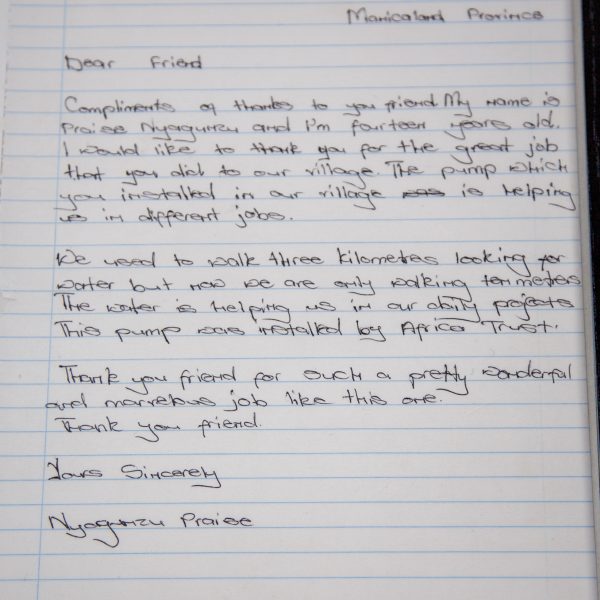 Manicaland Province
Dear Friend
Compliments of thanks to you friend. My name is
Praise Nyaguzu and I'm fourteen years old.
I would like to thank you for the great job
that you did to our village. The pump which
you installed in our village is helping
us in different jobs.
We used to walk three kilometres looking for
water but now we are only walking ten metres
The water is helping us in our daily projects
This pump was installed by Africa Trust.
Thank you friend for such a pretty wonderful
and marvelous job like this one.
Thank you friend.
Yours Sincerely
Praise